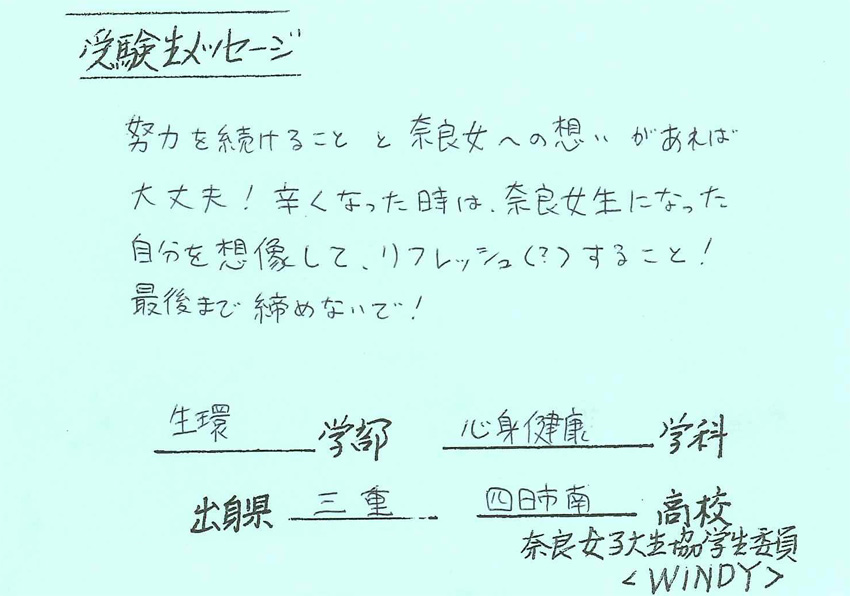 受験生メッセージ
努力を続けること と 奈良女への想い があれば
大丈夫！辛くなった時は、奈良女生になった
自分を想像して、リフレッシュ(?)すること！
最後まで締めないで！
生環 学部 心身健康 学科
出身県 三重 四日市南 高校
奈良女子大生協学生委員
<WiNDY>